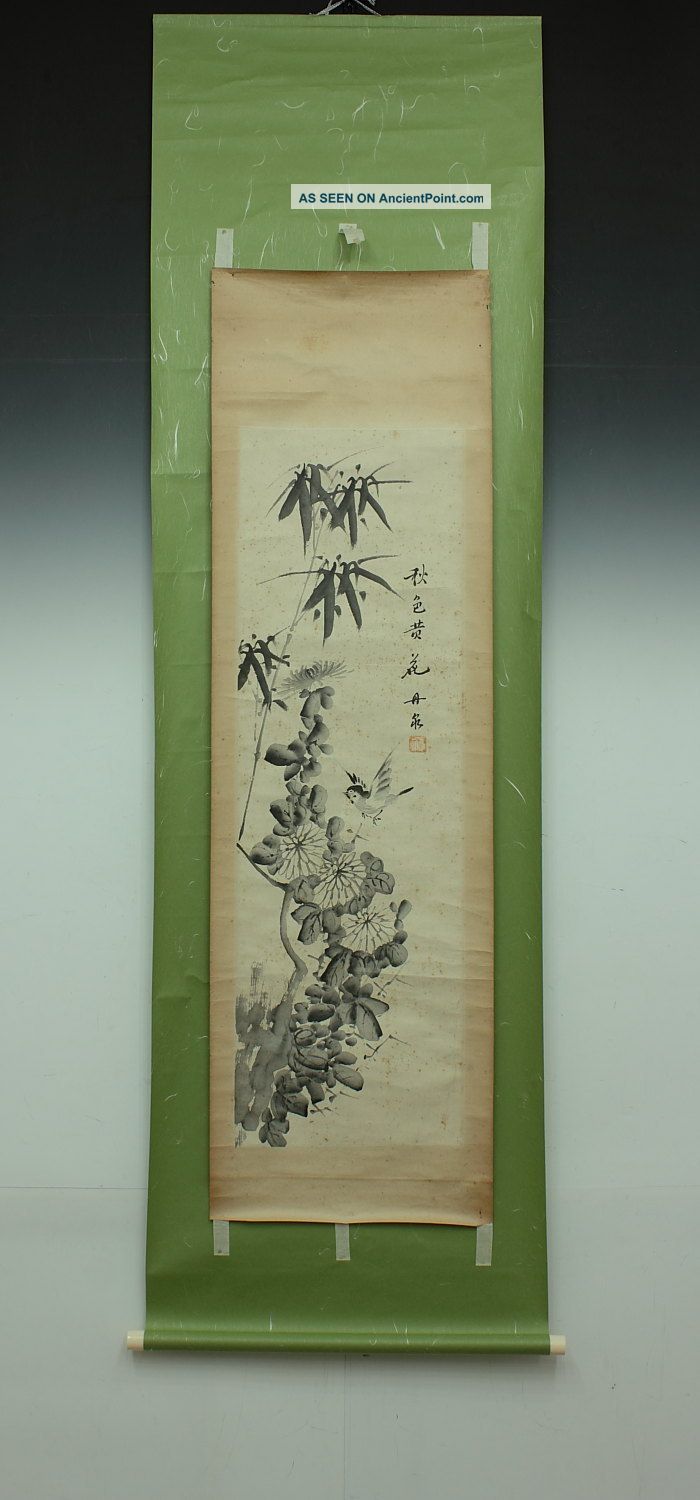 AS SEEN ON AncientPoint.com
秋色黄花 丹泉